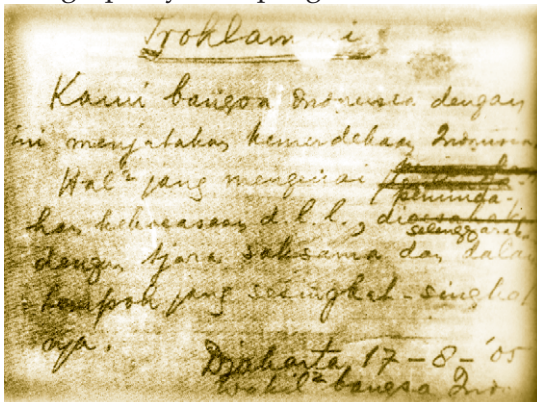 Proklamasi
Kami bangsa Indonesia dengan
ini menjatakan kemerdekaan Indonesia.
Hal² jang mengenai
peminda-
han kekoeasaan d.l.l., di
selenggarak
dengan tjara saksama dan dalam
tempoh jang sesingkat-singkat
nja.
Djakarta, 17 - 8 - '05
Wakil² bangsa Indo